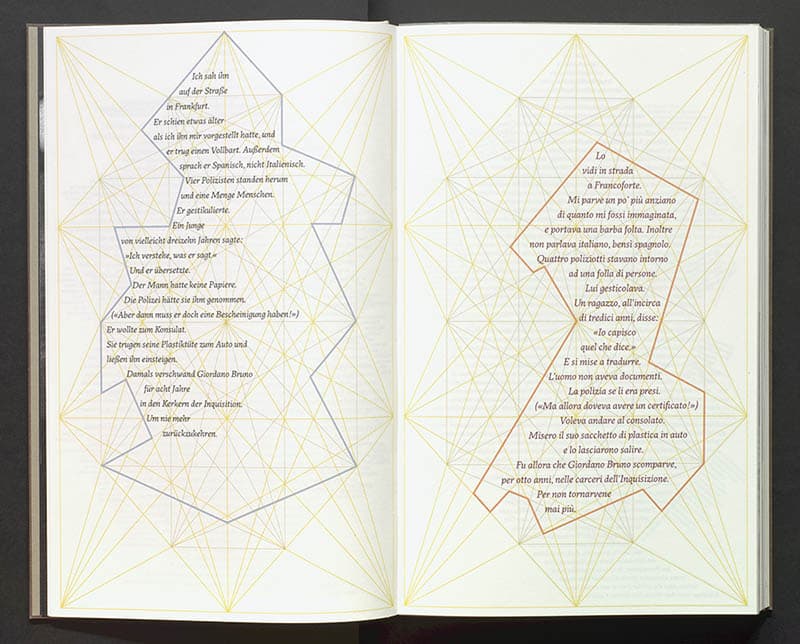 Ich sah ihn
auf der Straße
in Frankfurt.
Er schien etwas älter
als ich ihn mir vorgestellt hatte, und
er trug einen Vollbart. Außerdem
sprach er Spanisch, nicht Italienisch.
Vier Polizisten standen herum
und eine Menge Menschen.
Er gestikulierte.
Ein Junge
von vielleicht dreizehn Jahren sagte:
»Ich verstehe, was er sagt.«
Und er übersetzte.
Der Mann hatte keine Papiere.
Die Polizei hätte sie ihm genommen.
(»Aber dann muss er doch eine Bescheinigung haben!»)
Er wollte zum Konsulat.
Sie trugen seine Plastiktüte zum Auto und
ließen ihn einsteigen.
Damals verschwand Giordano Bruno
für acht Jahre
in den Kerkern der Inquisition.
Um nie mehr
zurückzukehren.
Lo
vidi in strada
a Francoforte.
Mi parve un po' più anziano
di quanto mi fossi immaginata,
e portava una barba folta. Inoltre
non parlava italiano, bensì spagnolo.
Quattro poliziotti stavano intorno
ad una folla di persone.
Lui gesticolava.
Un ragazzo, all'incirca
di tredici anni, disse:
«Io capisco
quel che dice.»
E si mise a tradurre.
L'uomo non aveva documenti.
La polizia se li era presi.
(«Ma allora doveva avere un certificato!»)
Voleva andare al consolato.
Misero il suo sacchetto di plastica in auto
e lo lasciarono salire.
Fu allora che Giordano Bruno scomparve,
per otto anni, nelle carceri dell'Inquisizione.
Per non tornarvene
mai più.